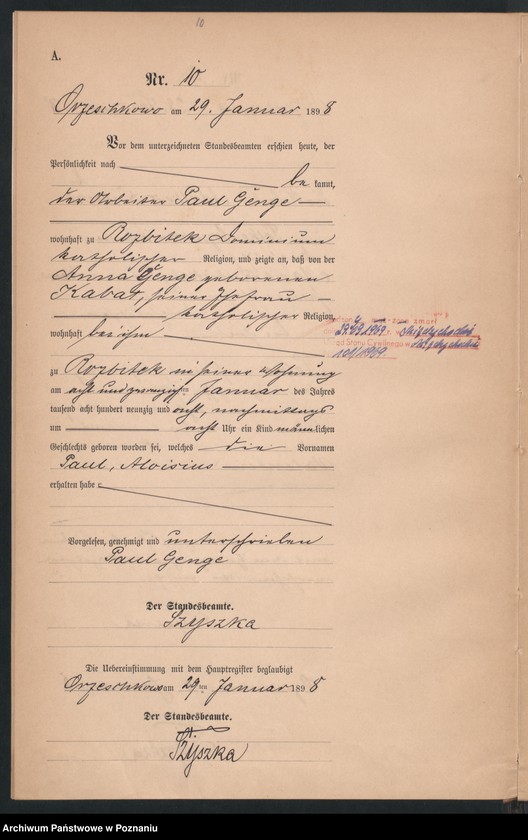 10
A.
Nr. 10
Orzeschkowo am 29. Januar 1898
Vor dem unterzeichneten Standesbeamten erschien heute, der
Persönlichkeit nach
be kannt,
der Arbeiter Paul Genge
wohnhaft zu Rozbitek Dominium
katholischer Religion, und zeigte an, daß von der
Anna Genge geborenen
Kabat, seiner Ehefrau
katholischer Religion,
wohnhaft bei ihm
zu Rozbitek in seiner Wohnung
am acht und zwanzigsten Januar des Jahres
tausend acht hundert neunzig und acht, nachmittags
um acht Uhr ein Kind männlichen
Geschlechts geboren worden sei, welches die Vornamen
Paul, Aloisius
erhalten habe
Vorgelesen, genehmigt und unterschrieben
Paul Genge
Der Standesbeamte.
Szyszka
Die Uebereinstimmung mit dem Hauptregister beglaubigt
Orzeschkowo am 29ten Januar 1898
Der Standesbeamte.
Szyszka
zmarł
1969
Stanu Cywilnego w
1969
Archiwum Państwowe w Poznaniu